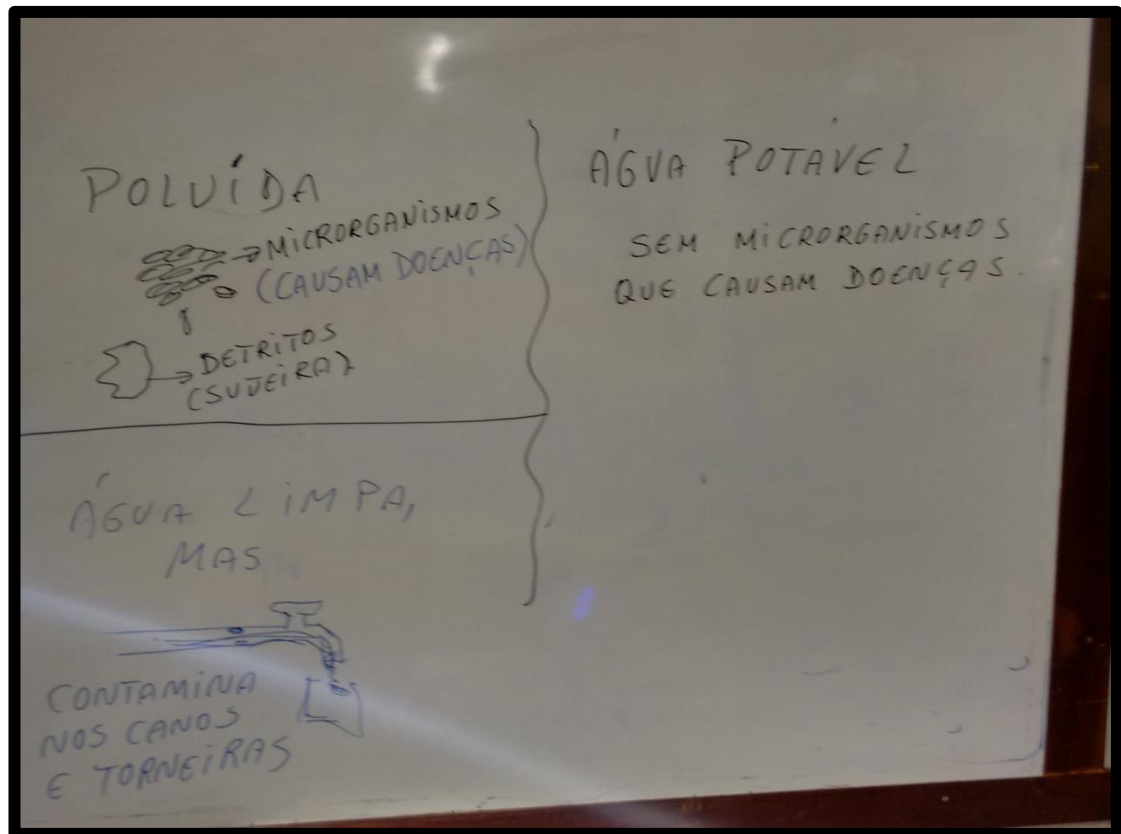 POLUÍDA
MICRORGANISMOS
(CAUSAM DOENÇAS)
DETRITOS
(SUJEIRA)
ÁGUA LIMPA,
MAS
CONTAMINA
NOS CANOS
E TORNEIRAS
ÁGUA POTÁVEL
SEM MICRORGANISMOS
QUE CAUSAM DOENÇAS.